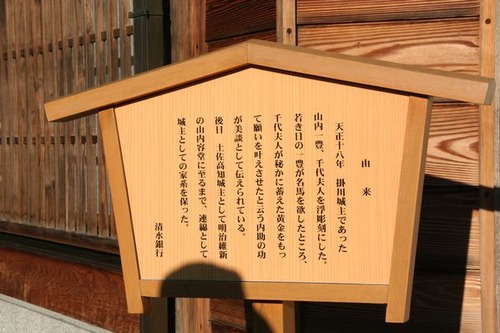 由来
天正十八年 掛川城主であった
山内一豊、千代夫人を浮彫刻にした。
若き日の一豊が名馬を欲したところ、
千代夫人が秘かに蓄えた黄金をもっ
て願いを叶えさせたと云う内助の功
が美談として伝えられている。
後日 土佐高知城主として明治維新
の山内容堂に至るまで、連綿として
城主としての家系を保った。
清水銀行